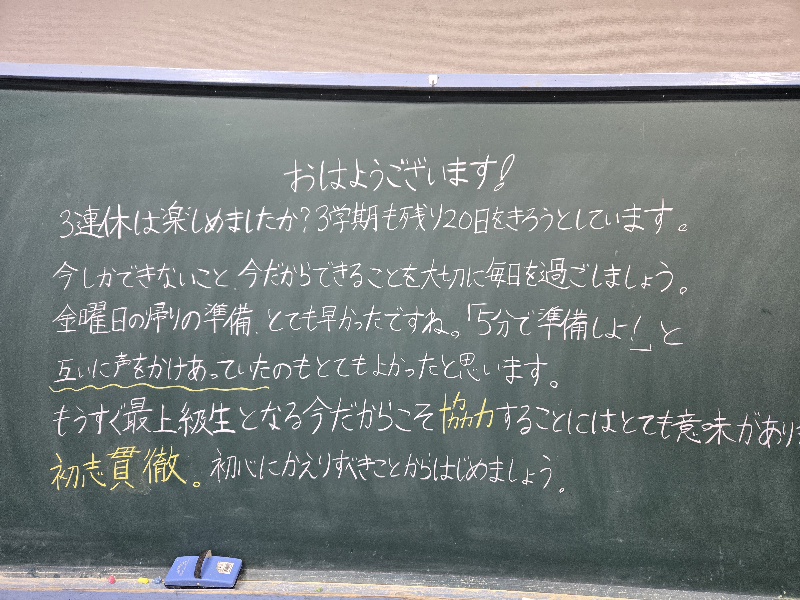 おはようございます!
3連休は楽しめましたか?3学期も残り20日をきろうとしています。
今しかできないこと、今だからできることを大切に毎日を過ごしましょう。
金曜日の帰りの準備、とても早かったですね。「5分で準備しよ!」と
互いに声をかけあっていたのもとてもよかったと思います。
もうすぐ最上級生となる今だからこそ協力することにはとても意味があり
初志貫徹。初心にかえりすべきことからはじめましょう。